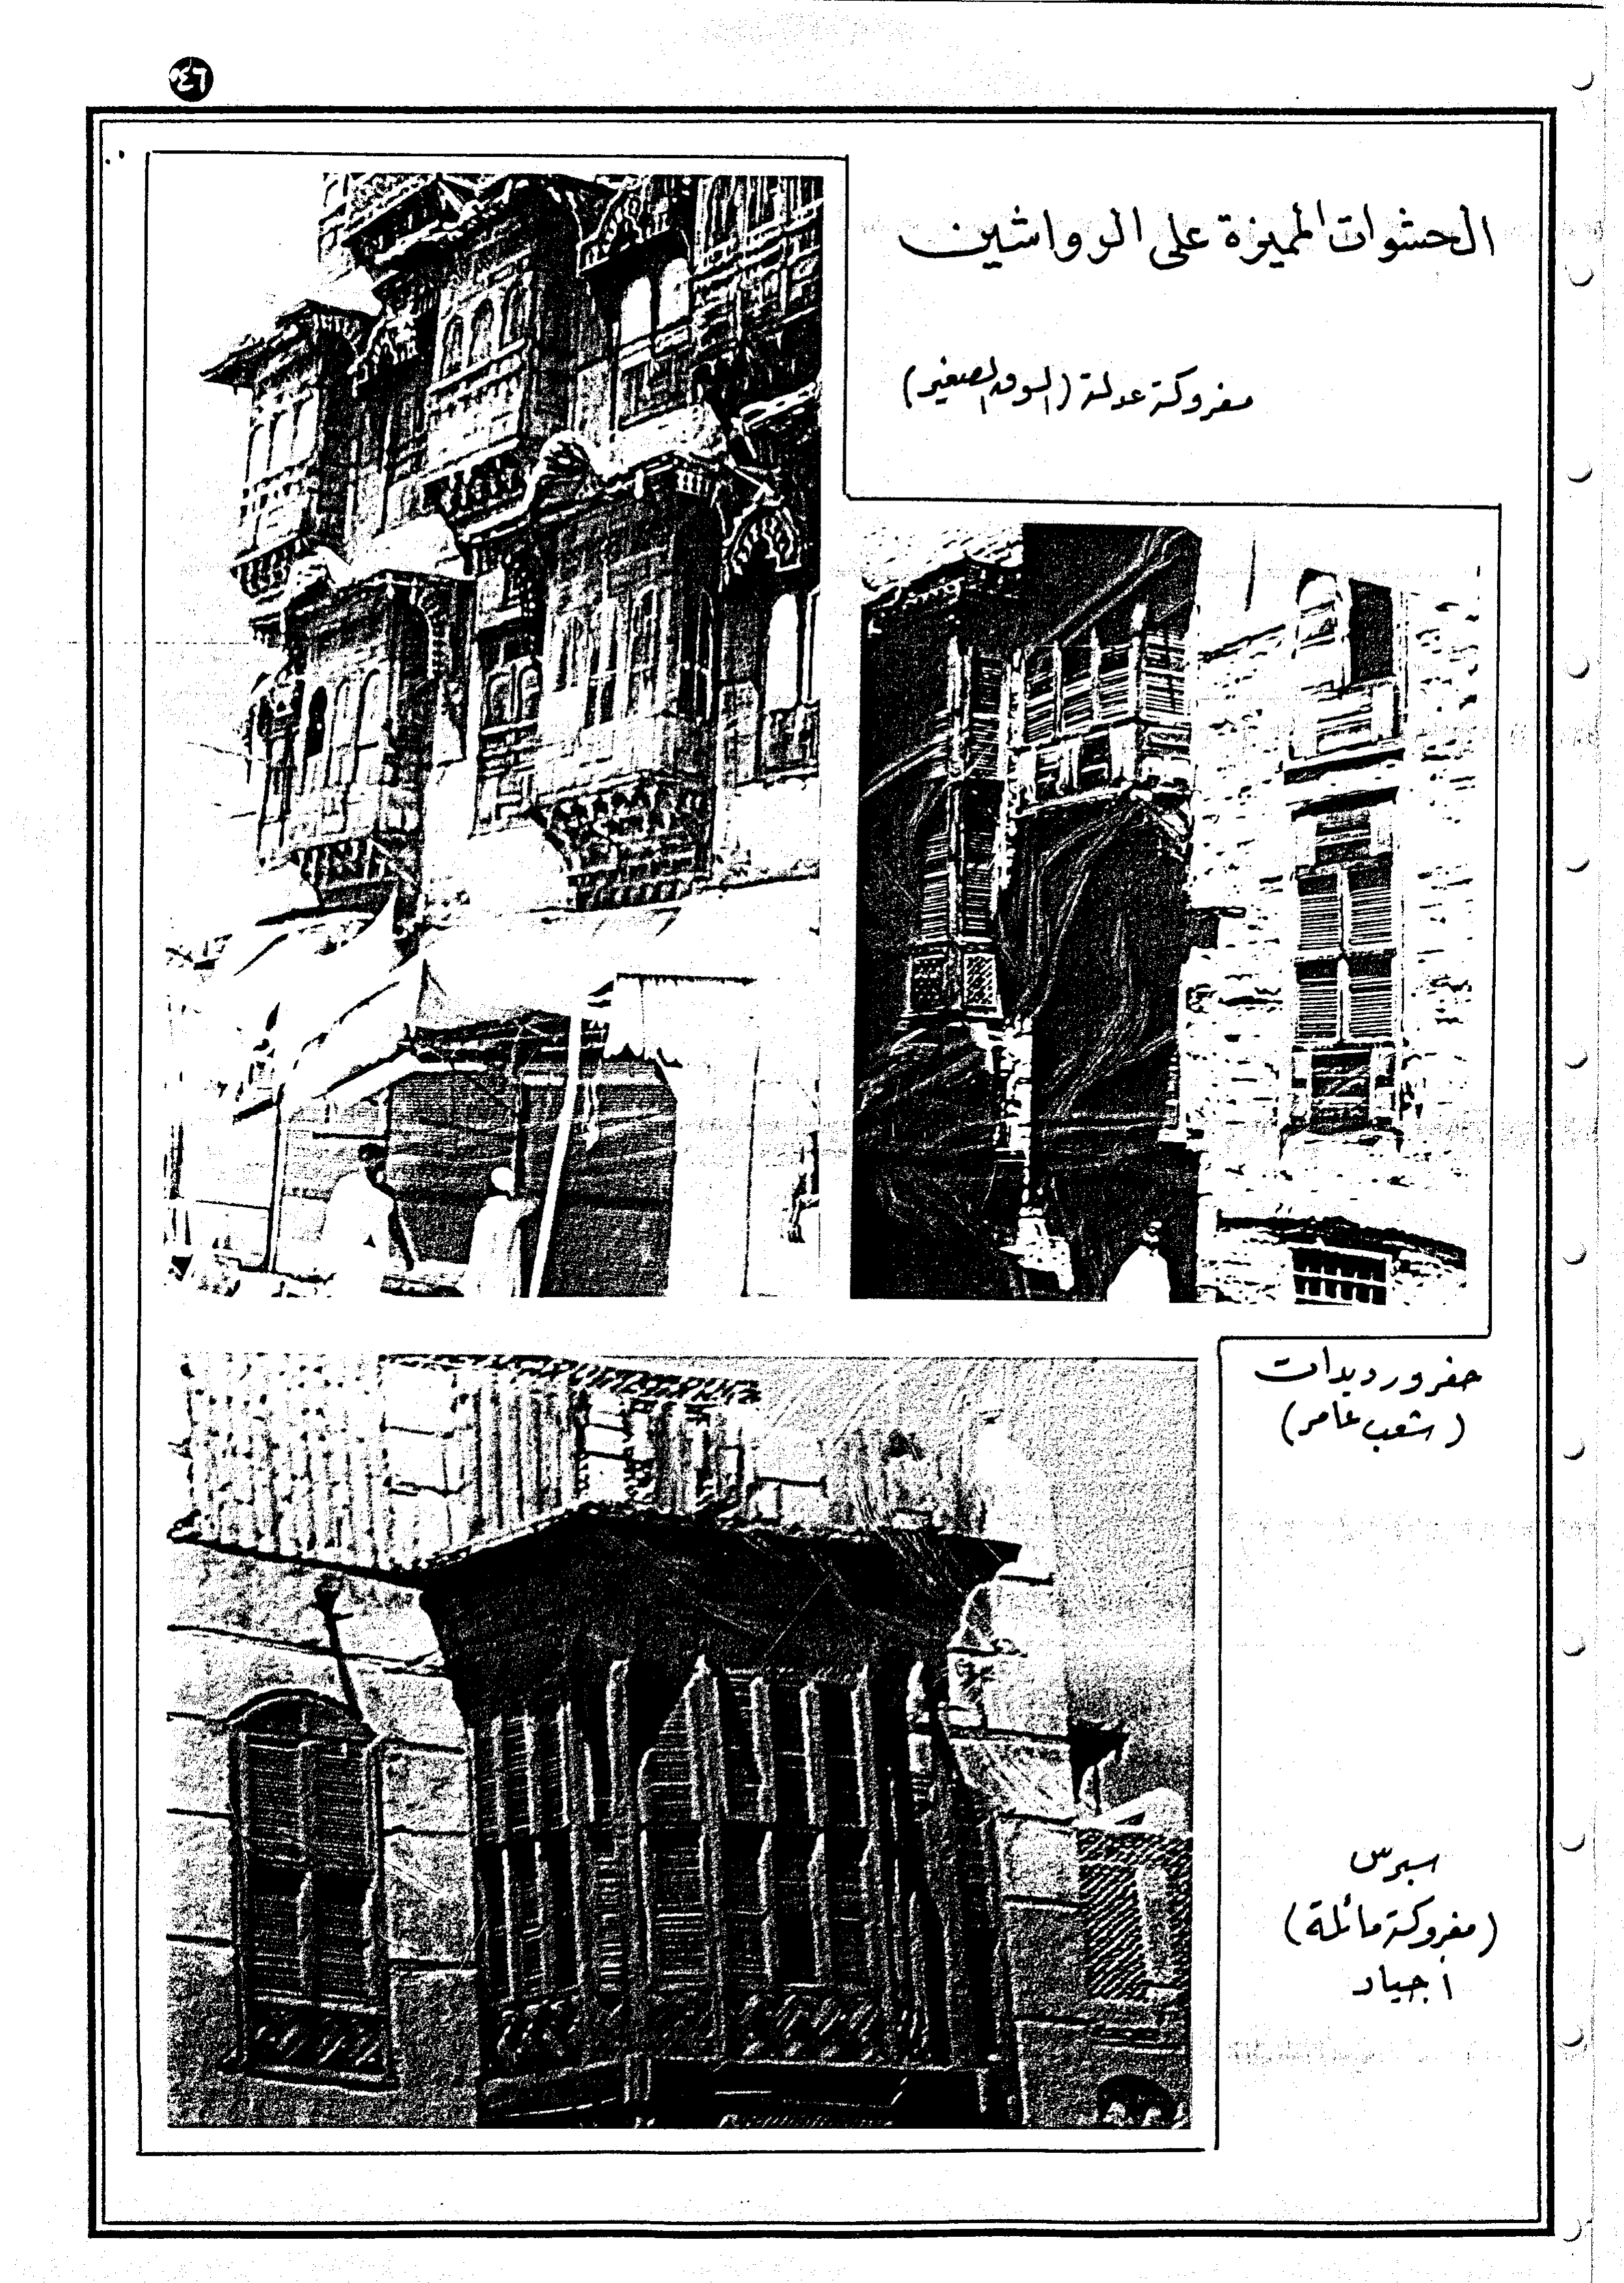 ٤٦
الحشوات المميزة على الرواشين
مفروكة عدلة (السوق الصغير)
حفر وريدات
(شعب عامر)
سبرس
(مفروكة مائلة)
اجياد